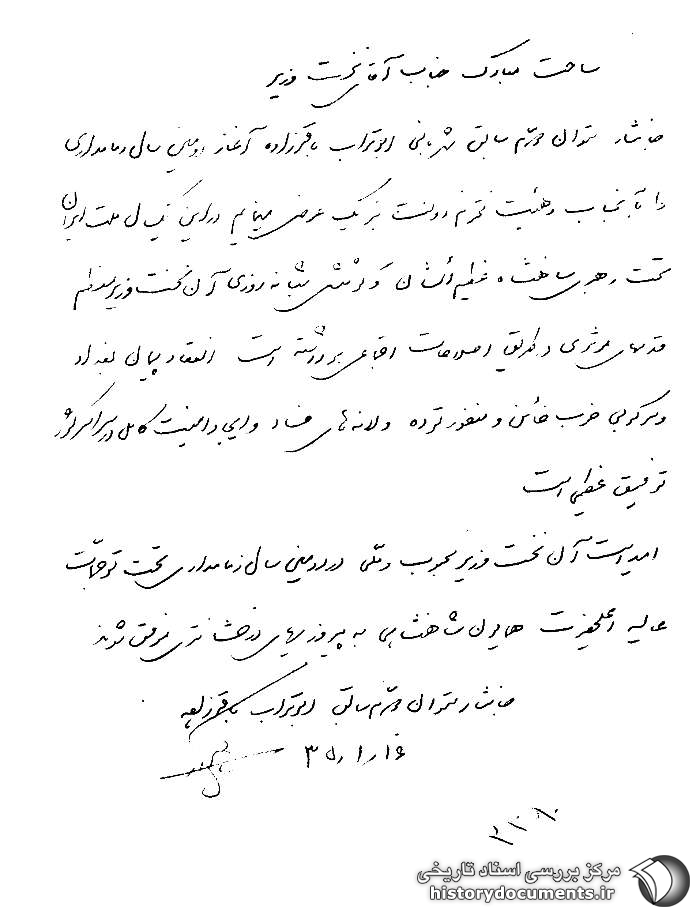 ساحت مبارک جناب آقای نخست وزیر
جانثار ستوان دوم سابق شهربانی ابوتراب باقرزاده آغاز دومین سال زمامداری
را بآنجناب و هیئت محترم دولت تبریک عرض مینمایم در این یکسال ملت ایران
تحت رهبری شاهنشاه عظیم الشأن و کوشش شبانه روزی آن نخست وزیر معظم
قدمهای موثری در طریق اصلاحات اجتماعی برداشته است انعقاد پیمان بغداد
و سرکوبی حزب خائن و منفور توده و لانه های فساد و ایجاد امنیت کامل در سراسر کشور
توفیق عظیمی است
امید است آن نخست وزیر محبوب و ملی در دومین سال زمامداری تحت توجهات
عالیه اعلیحضرت همایون شاهنشاهی به پیروزیهای درخشانتری موفق شوند
جانثار ستوان دوم سابق ابوتراب باقرزاده
۳۵/۱/۱۶
مرکز بررسی اسناد تاریخی
historydocuments.ir